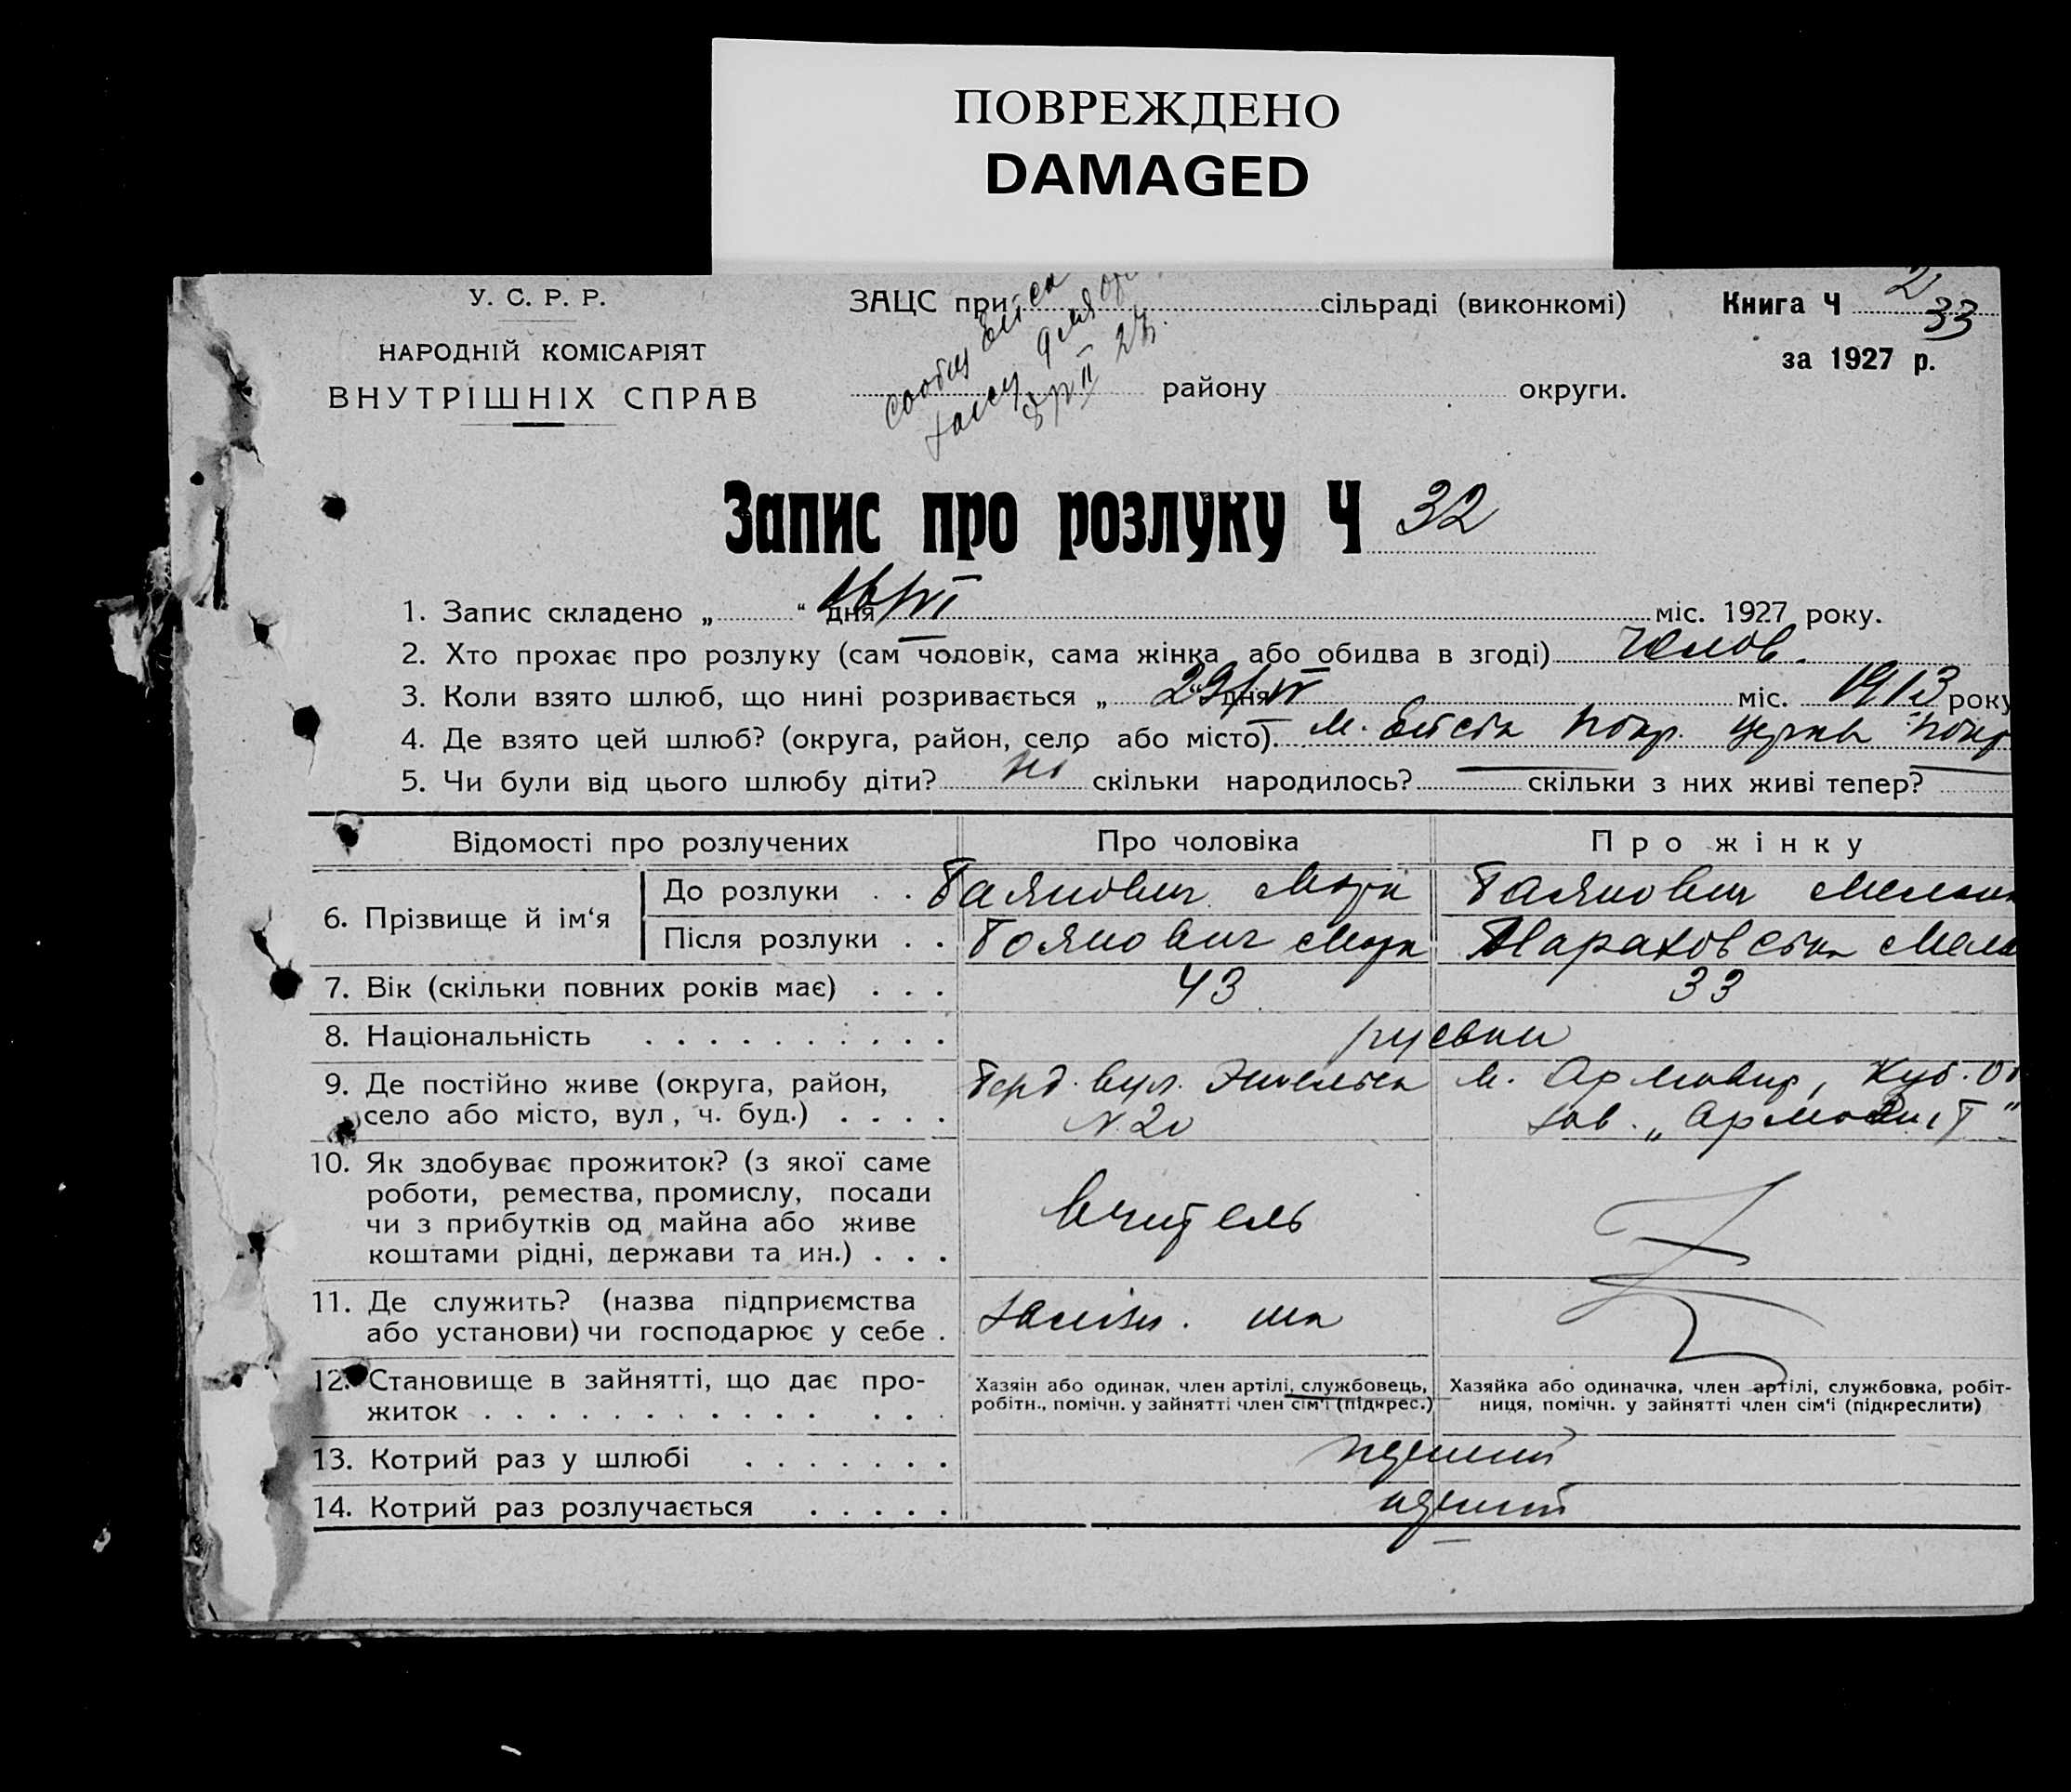 ПОВРЕЖДЕНО
DAMAGED
У. С. Р. Р.
НАРОДНІЙ КОМІСАРІЯТ
ВНУТРІШНІХ СПРАВ
ЗАЦС при сільраді (виконкомі)
району округи.
Книга Ч 2
33
за 1927 р.
Запис про розлуку Ч 32
1. Запис складено „ “ дня міс. 1927 року.
2. Хто прохає про розлуку (сам чоловік, сама жінка або обидва в згоді) Чолов.
3. Коли взято шлюб, що нині розривається „ “ дня 29/IV міс. 1913 року
4. Де взято цей шлюб? (округа, район, село або місто). м. Покр. церкв
5. Чи були від цього шлюбу діти? ні скільки народилось? — скільки з них живі тепер? —
Відомості про розлучених Про чоловіка Про жінку
6. Прізвище й ім‘я
До розлуки . . Баянович Баянович
Після розлуки . . Боянович
7. Вік (скільки повних років має) . . . 43 33
8. Національність . . . . . . . . . . руські
9. Де постійно живе (округа, район, Берд. вул. м. Армавир, Куб. Об
село або місто, вул, ч. буд.) . . . . N 20 зав. „
10. Як здобуває прожиток? (з якої саме
роботи, ремества, промислу, посади
чи з прибутків од майна або живе Вчитель
коштами рідні, держави та ин.) . . .
11. Де служить? (назва підприємства
або установи) чи господарює у себе . заліз. шк
12. Становище в зайнятті, що дає про-
житок . . . . . . . . . . . . . . .
Хазяїн або одинак, член артілі, службовець,
робітн., помічн. у зайнятті член сім‘ї (підкрес.)
Хазяйка або одиначка, член артілі, службовка, робіт-
ниця, помічн. у зайнятті член сім‘ї (підкреслити)
13. Котрий раз у шлюбі . . . . . . . перший
14. Котрий раз розлучається . . . . . перший